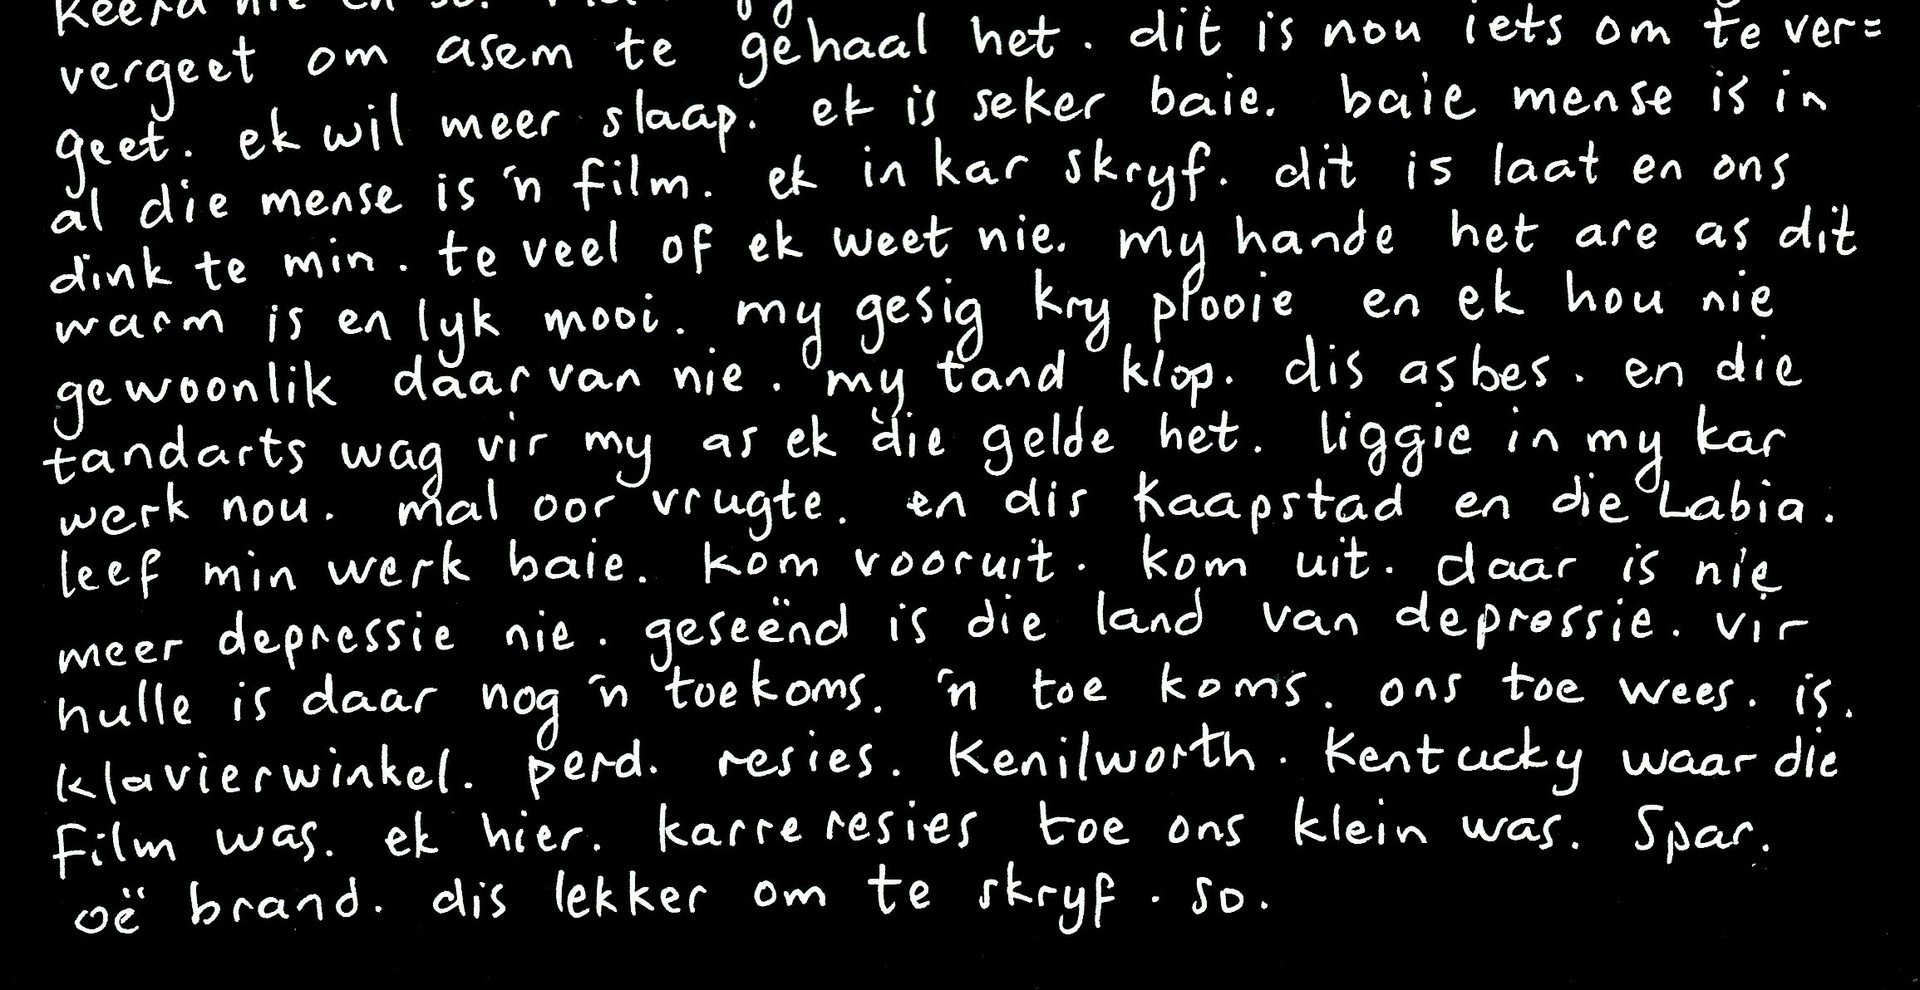 vergeet om asem te gehaal het. dit is nou iets om te ver=
geet. ek wil meer slaap. ek is seker baie. baie mense is in
al die mense is 'n film. ek in kar skryf. dit is laat en ons
dink te min. te veel of ek weet nie. my hande het are as dit
warm is en lyk mooi. my gesig kry plooie en ek hou nie
gewoonlik daarvan nie. my tand klop. dis asbes. en die
tandarts wag vir my as ek die gelde het. liggie in my kar
werk nou. mal oor vrugte. en dis Kaapstad en die Labia.
leef min werk baie. kom vooruit. kom uit. daar is nie
meer depressie nie. geseënd is die land van depressie. vir
hulle is daar nog 'n toekoms. 'n toe koms. ons toe wees. is.
klavierwinkel. perd. resies. Kenilworth. Kentucky waar die
film was. ek hier. karre resies toe ons klein was. Spar.
oë brand. dis lekker om te skryf. so.